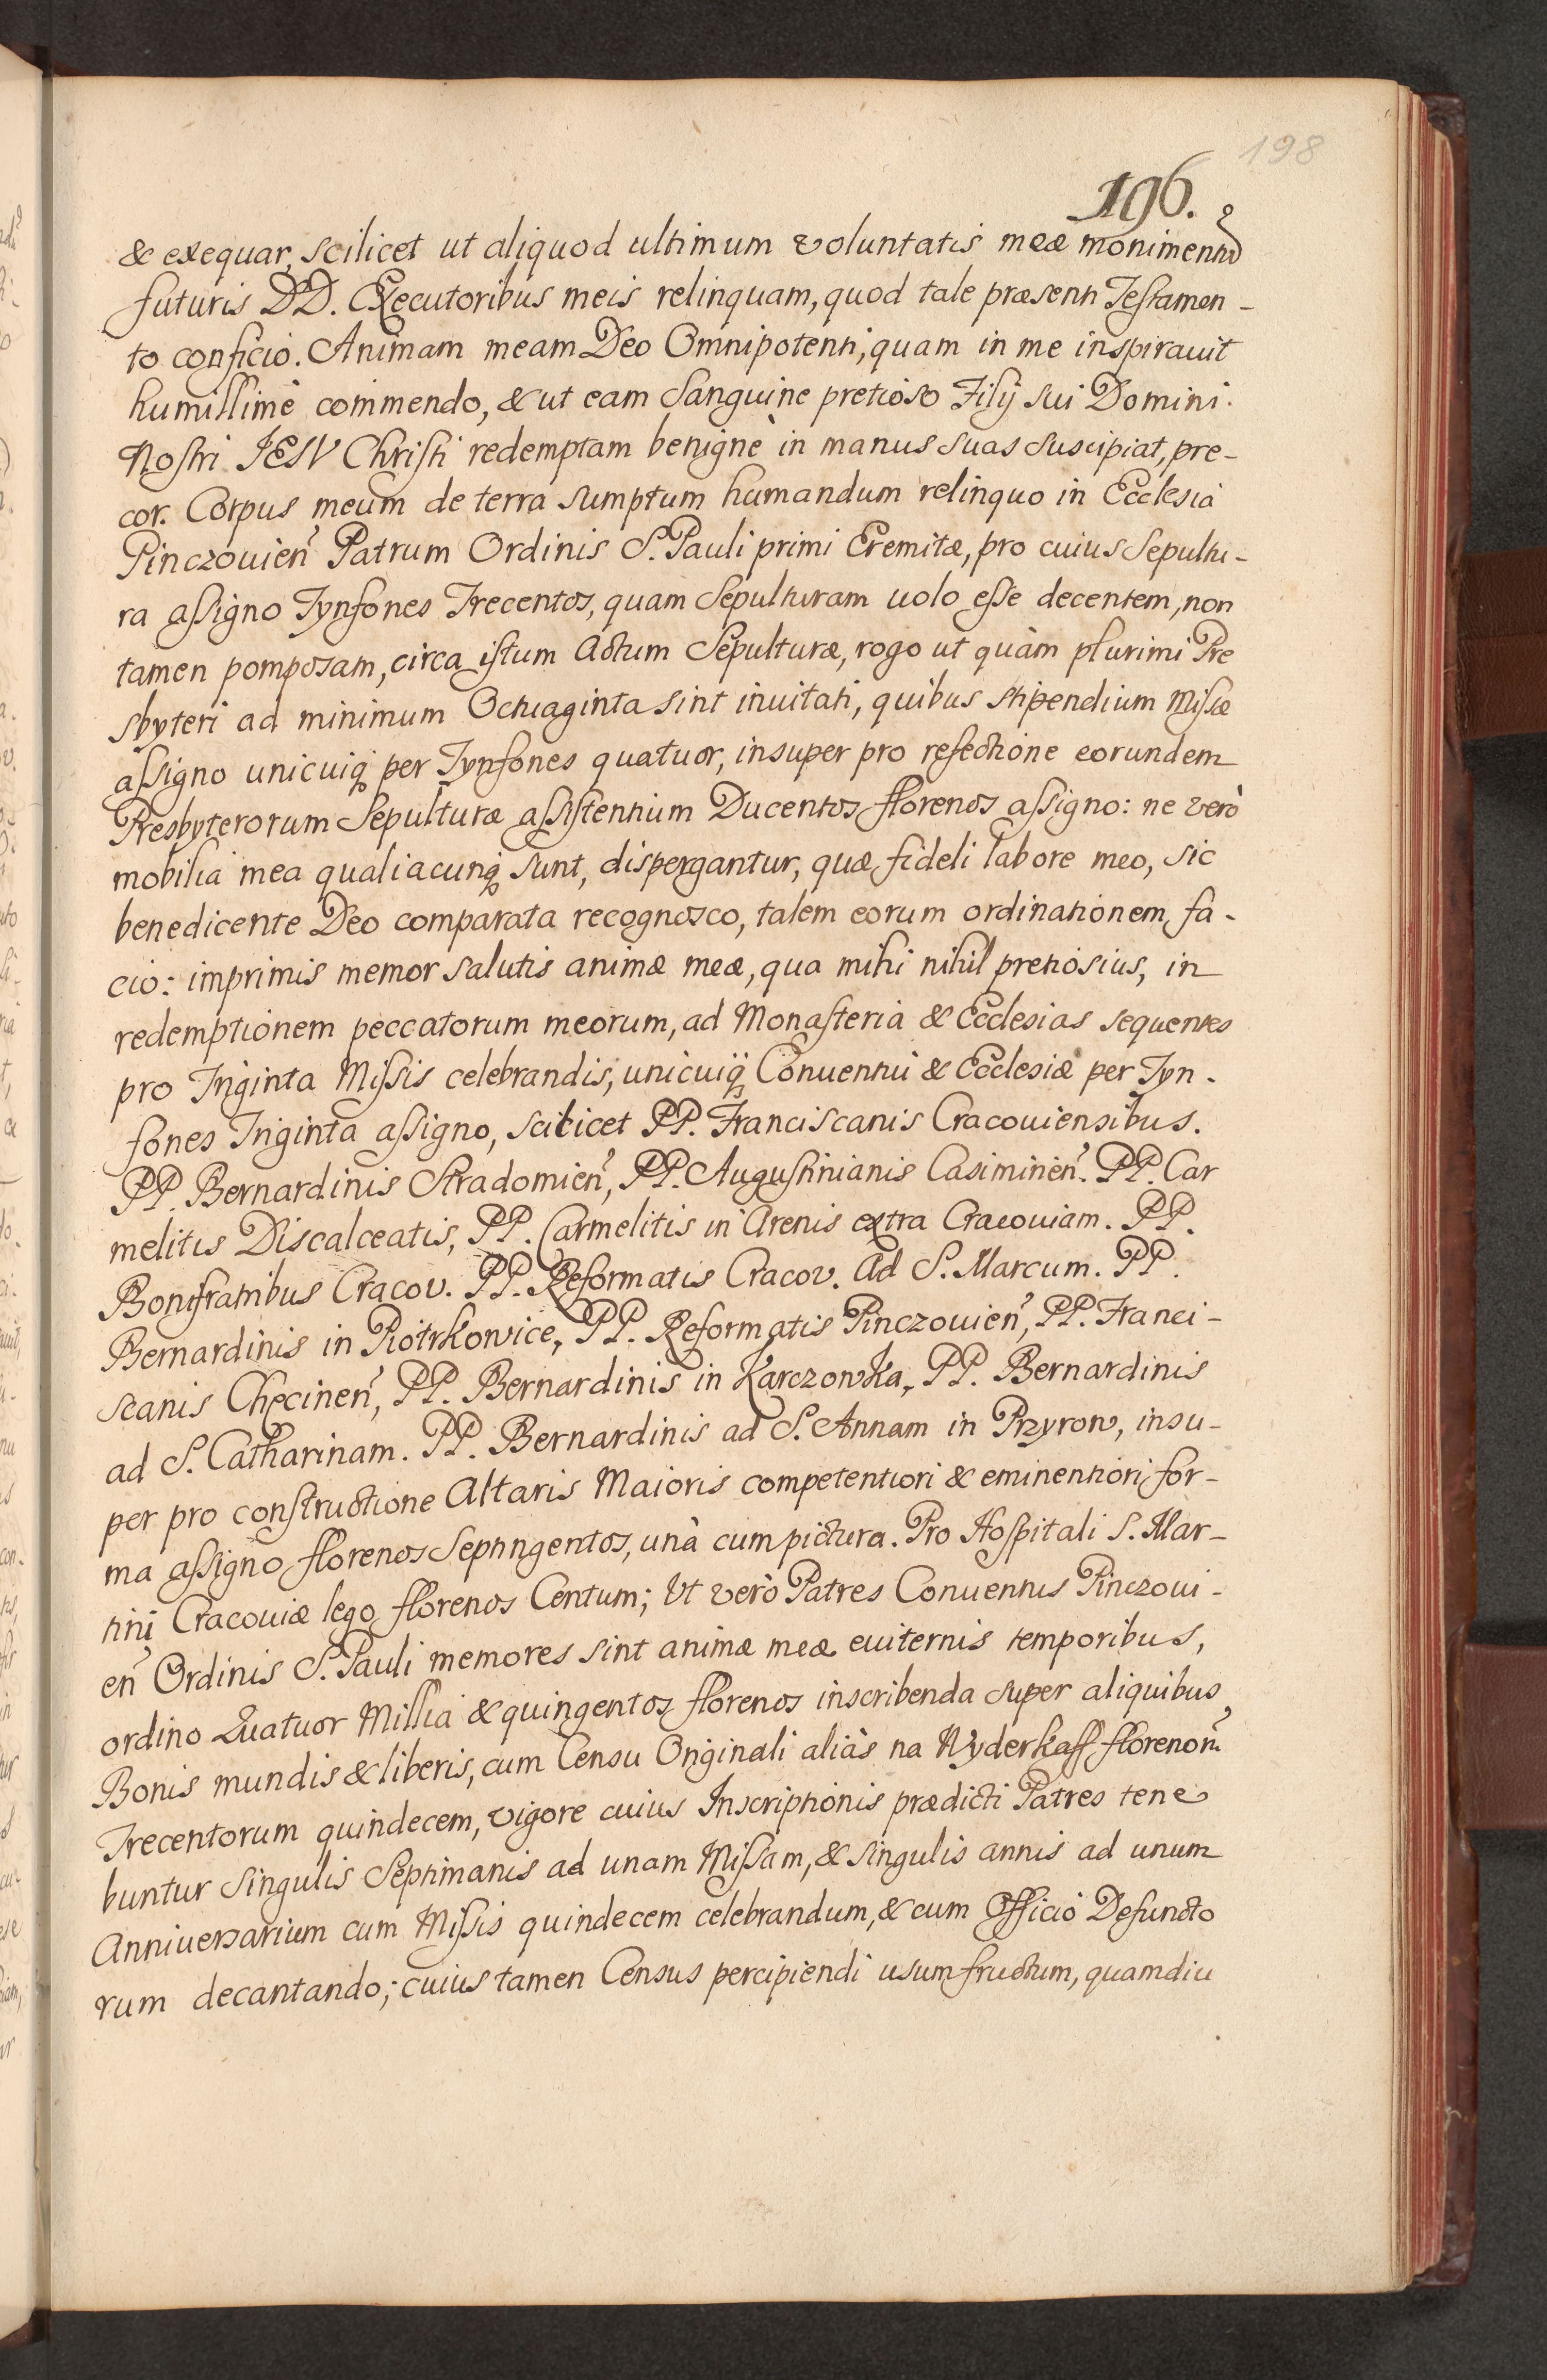 198
196.
& exequar, scilicet ut aliquod ultimum voluntatis meæ moniment̃u
futuris DD. Executoribus meis relinquam, quod tale præsenti Testamen-
to conficio. Animam meam Deo Omnipotenti, quam in me inspirauit
humillimè commendo, & ut eam Sanguine pretioso Filij sui Domini
Nostri IESV Christi redemptam benignè in manus suas suscipiat, pre-
cor. Corpus meum de terra sumptum humandum relinquo in Ecclesia
Pinczouień Patrum Ordinis S. Pauli primi Eremitæ, pro cuius Sepultu-
ra assigno Tynfones Trecentos, quam Sepulturam uolo esse decentem, non
tamen pomposam, circa istum Actum Sepulturæ, rogo ut quàm plurimi Pre
sbyteri ad minimum Octuaginta sint inuitati, quibus stipendium Missæ
assigno unicuiq; per Tynfones quatuor, insuper pro refectione eorundem
Presbyterorum Sepulturæ assistentium Ducentos florenos assigno: ne verò
mobilia mea qualiacunq; sunt, dispergantur, quæ fideli labore meo, sic
benedicente Deo comparata recognosco, talem eorum ordinationem fa-
cio: imprimis memor salutis animæ meæ, qua mihi nihil pretiosius, in
redemptionem peccatorum meorum, ad Monasteria & Ecclesias sequentes
pro Triginta Missis celebrandis, unicuiq; Conuentui & Ecclesiæ per Tyn-
fones Triginta assigno, scilicet PP. Franciscanis Cracouiensibus.
PP. Bernardinis Stradomień, PP. Augustinianis Casimirień. PP. Car
melitis Discalceatis, PP. Carmelitis in Arenis extra Cracouiam. PP.
Bonifratribus Cracov. PP. Reformatis Cracov. Ad S. Marcum. PP.
Bernardinis in Piotrkowice, PP. Reformatis Pinczouień, PP. Franci-
scanis Chęcineń, PP. Bernardinis in Karczowka, PP. Bernardinis
ad S. Catharinam. PP. Bernardinis ad S. Annam in Przyrow, insu-
per pro constructione Altaris Maioris competentiori & eminentiori for-
ma assigno florenos Septingentos, unà cum pictura. Pro Hospitali S. Mar-
tini Cracouiæ lego florenos Centum; Ut verò Patres Conuentus Pinczoui-
eń Ordinis S. Pauli memores sint animæ meæ euiternis temporibus,
ordino Quatuor Millia & quingentos florenos inscribenda super aliquibus
Bonis mundis & liberis, cum Censu Originali aliàs na Wyderkaff florenoru᷉
Trecentorum quindecem, vigore cuius Inscriptionis prædicti Patres tene
buntur singulis Septimanis ad unam Missam, & singulis annis ad unum
Anniuersarium cum Missis quindecem celebrandum, & cum Officio Defuncto
rum decantando; cuius tamen Census percipiendi usumfructum, quamdiu